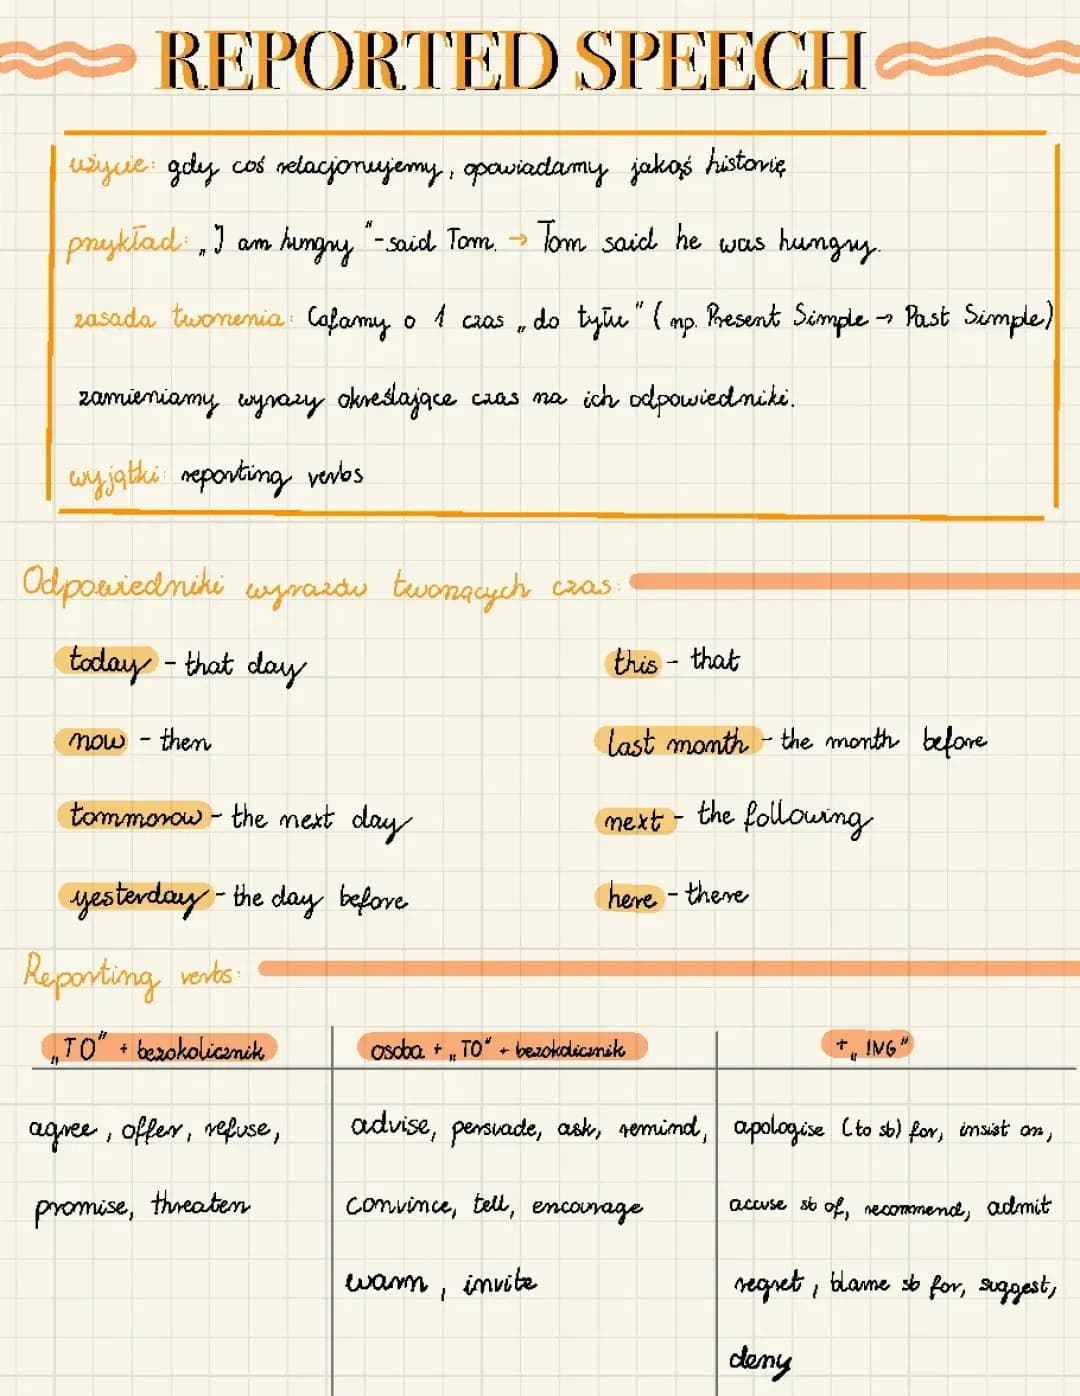 REPORTED SPEECH
użycie: gdy coś relacjonujemy, opowiadamy jakąś historię
przykład: „I am hungry" - said Tom. → Tom said he was hungry.
zasada tworzenia: Cofamy o 1 czas „do tyłu" (np. Present Simple → Past Simple)
zamieniamy wyrazy określające czas na ich odpowiedniki.
wyjątki: reporting verbs
Odpowiedniki wyrazów tworzących czas:
today - that day
this - that
now - then
last month - the month before
tommorow - the next day
next - the following
yesterday - the day before
here - there
Reporting verbs:
„TO" + bezokolicznik
osoba + „TO" + bezokolicznik
+ „ING"
agree, offer, refuse,
promise, threaten
advise, persuade, ask, remind,
convince, tell, encourage
warn, invite
apologise (to sb) for, insist on,
accuse sb of, recommend, admit
regret, blame sb for, suggest,
deny